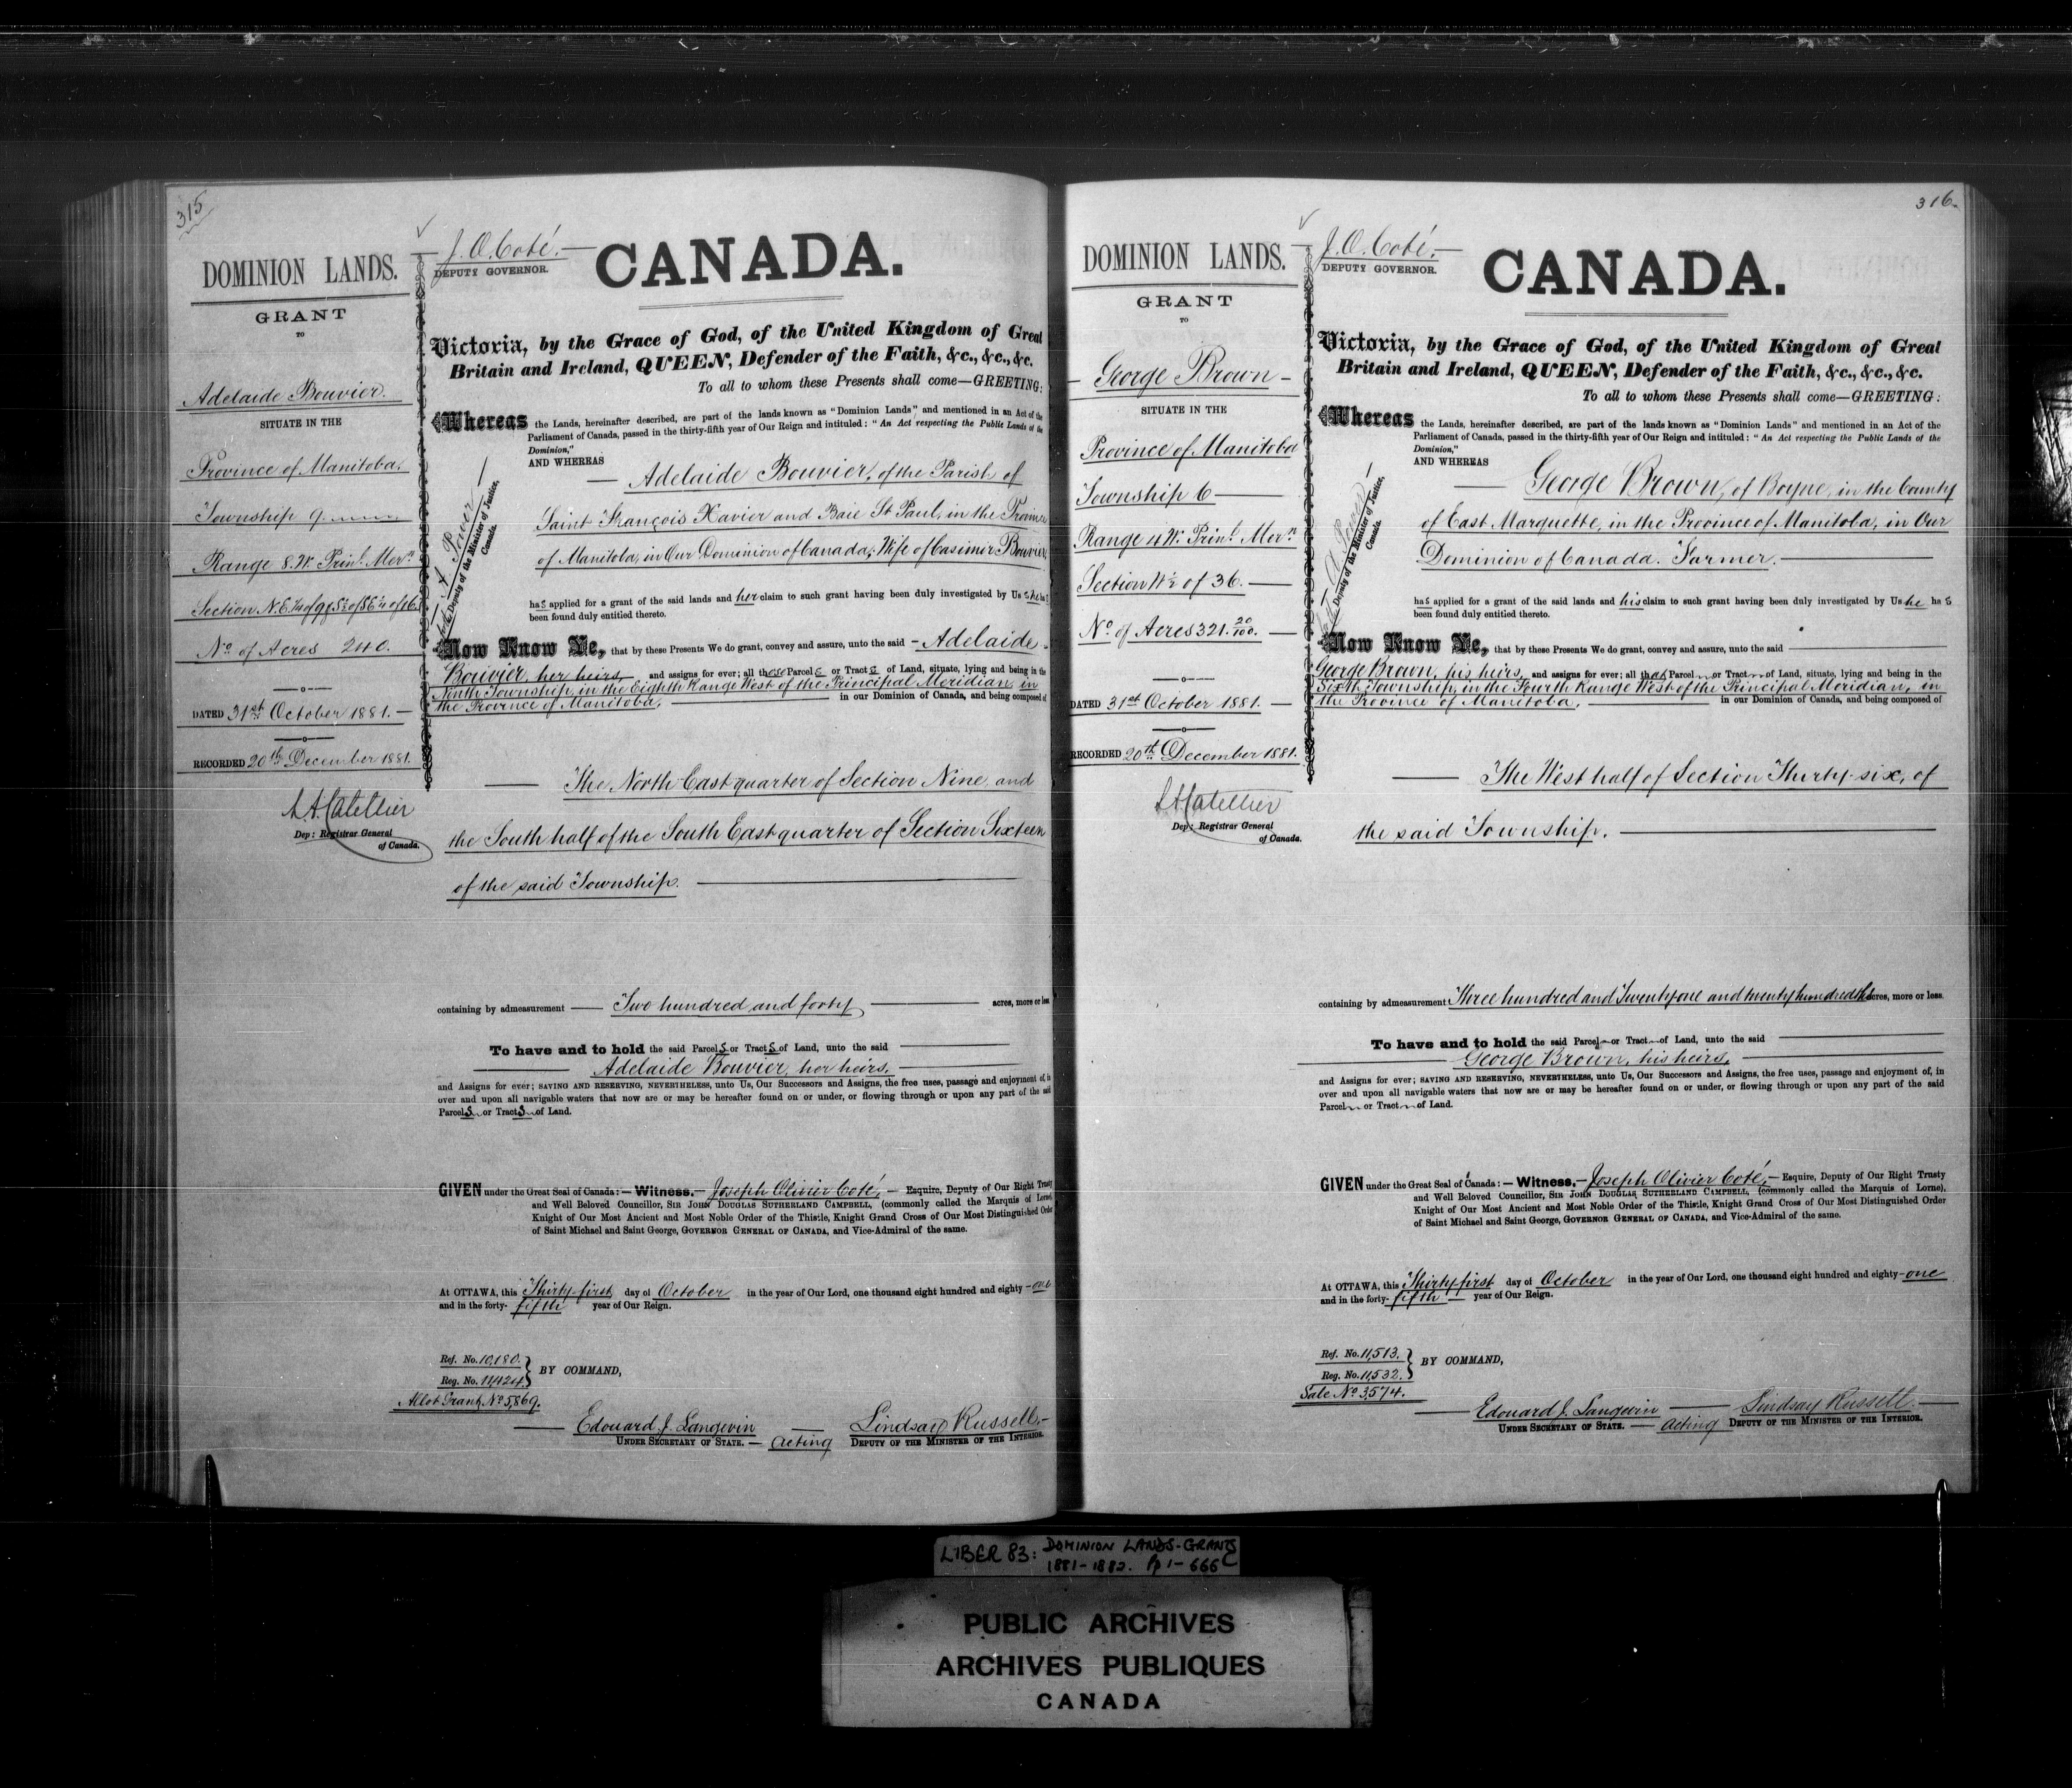 315
DOMINION LANDS.
GRANT
TO
Adelaide Bouvier.
SITUATE IN THE
Province of Manitoba.
Township 9
Range 8. W. Prinl. Mern
Section N.E.¼ of 9 & S½ of SE¼ of 16.
No. of Acres 240.
DATED 31st October 1881.—
RECORDED 20th December 1881.
Dep: Registrar General
of Canada.
J. O. Coté.—
DEPUTY GOVERNOR.
CANADA.
Victoria, by the Grace of God, of the United Kingdom of Great
Britain and Ireland, QUEEN, Defender of the Faith, &c., &c., &c.
To all to whom these Presents shall come—GREETING:
Deputy of the Minister of Justice,
Canada.
Whereas the Lands, hereinafter described, are part of the lands known as "Dominion Lands" and mentioned in an Act of the
Parliament of Canada, passed in the thirty-fifth year of Our Reign and intituled: "An Act respecting the Public Lands of the
Dominion,"
AND WHEREAS
— Adelaide Bouvier, of the Parish of
Saint François Xavier and Baie St Paul, in the Province
of Manitoba, in Our Dominion of Canada, Wife of Casimir Bouvier
has applied for a grant of the said lands and her claim to such grant having been duly investigated by Us she has
been found duly entitled thereto.
Now Know Ye, that by these Presents We do grant, convey and assure, unto the said - Adelaide
Bouvier, her heirs, and assigns for ever; all those Parcels or Tracts of Land, situate, lying and being in the
Ninth Township, in the Eighth Range West of the Principal Meridian, in
the Province of Manitoba, in our Dominion of Canada, and being composed of
— The North East quarter of Section Nine, and
the South half of the South East quarter of Section Sixteen
of the said Township.
containing by admeasurement — Two hundred and forty — acres, more or less
To have and to hold the said Parcels or Tracts of Land, unto the said
Adelaide Bouvier, her heirs,
and Assigns for ever; SAVING AND RESERVING, NEVERTHELESS, unto Us, Our Successors and Assigns, the free uses, passage and enjoyment of, in
over and upon all navigable waters that now are or may be hereafter found on or under, or flowing through or upon any part of the said
Parcels or Tracts of Land.
GIVEN under the Great Seal of Canada:—Witness.—Joseph Olivier Coté,— Esquire, Deputy of Our Right Trusty
and Well Beloved Councillor, SIR JOHN DOUGLAS SUTHERLAND CAMPBELL, (commonly called the Marquis of Lorne),
Knight of Our Most Ancient and Most Noble Order of the Thistle, Knight Grand Cross of Our Most Distinguished Order
of Saint Michael and Saint George, GOVERNOR GENERAL OF CANADA, and Vice-Admiral of the same.
At OTTAWA, this Thirty-first day of October in the year of Our Lord, one thousand eight hundred and eighty-one
and in the forty-fifth year of Our Reign.
Ref. No. 10,180.
Reg. No. 11,424. } BY COMMAND,
Allot Grant, No. 5,869.
Edouard J. Langevin — Lindsay Russell.—
UNDER SECRETARY OF STATE. — Acting DEPUTY OF THE MINISTER OF THE INTERIOR.
316
DOMINION LANDS.
GRANT
TO
— George Brown —
SITUATE IN THE
Province of Manitoba
Township 6 —
Range 4 W. Prinl. Mern
Section W½ of 36. —
No. of Acres 321. 20/100. —
DATED 31st October 1881. —
RECORDED 20th December 1881.
Dep: Registrar General
of Canada.
J. O. Coté.—
DEPUTY GOVERNOR.
CANADA.
Victoria, by the Grace of God, of the United Kingdom of Great
Britain and Ireland, QUEEN, Defender of the Faith, &c., &c., &c.
To all to whom these Presents shall come—GREETING:
Deputy of the Minister of Justice,
Canada.
Whereas the Lands, hereinafter described, are part of the lands known as "Dominion Lands" and mentioned in an Act of the
Parliament of Canada, passed in the thirty-fifth year of Our Reign and intituled: "An Act respecting the Public Lands of the
Dominion,"
AND WHEREAS
— George Brown, of Boyne, in the County
of East Marquette, in the Province of Manitoba, in Our
Dominion of Canada. Farmer. —
has applied for a grant of the said lands and his claim to such grant having been duly investigated by Us he has
been found duly entitled thereto.
Now Know Ye, that by these Presents We do grant, convey and assure, unto the said
George Brown, his heirs, and assigns for ever; all that Parcel or Tract of Land, situate, lying and being in the
Sixth Township, in the Fourth Range West of the Principal Meridian, in
the Province of Manitoba. in our Dominion of Canada, and being composed of
— The West half of Section Thirty-six, of
the said Township.
containing by admeasurement Three hundred and Twenty one and twenty hundredths acres, more or less.
To have and to hold the said Parcel or Tract of Land, unto the said
George Brown, his heirs,
and Assigns for ever; SAVING AND RESERVING, NEVERTHELESS, unto Us, Our Successors and Assigns, the free uses, passage and enjoyment of, in
over and upon all navigable waters that now are or may be hereafter found on or under, or flowing through or upon any part of the said
Parcel or Tract of Land.
GIVEN under the Great Seal of Canada:—Witness.—Joseph Olivier Coté,— Esquire, Deputy of Our Right Trusty
and Well Beloved Councillor, SIR JOHN DOUGLAS SUTHERLAND CAMPBELL, (commonly called the Marquis of Lorne),
Knight of Our Most Ancient and Most Noble Order of the Thistle, Knight Grand Cross of Our Most Distinguished Order
of Saint Michael and Saint George, GOVERNOR GENERAL OF CANADA, and Vice-Admiral of the same.
At OTTAWA, this Thirty-first day of October in the year of Our Lord, one thousand eight hundred and eighty-one
and in the forty-fifth — year of Our Reign.
Ref. No. 11,513.
Reg. No. 11,532. } BY COMMAND,
Sale No. 3,574.
Edouard J. Langevin — Lindsay Russell.—
UNDER SECRETARY OF STATE. — Acting DEPUTY OF THE MINISTER OF THE INTERIOR.
LIBER 83: DOMINION LANDS-GRANTS
1881-1882. Pp 1-666
PUBLIC ARCHIVES
ARCHIVES PUBLIQUES
CANADA